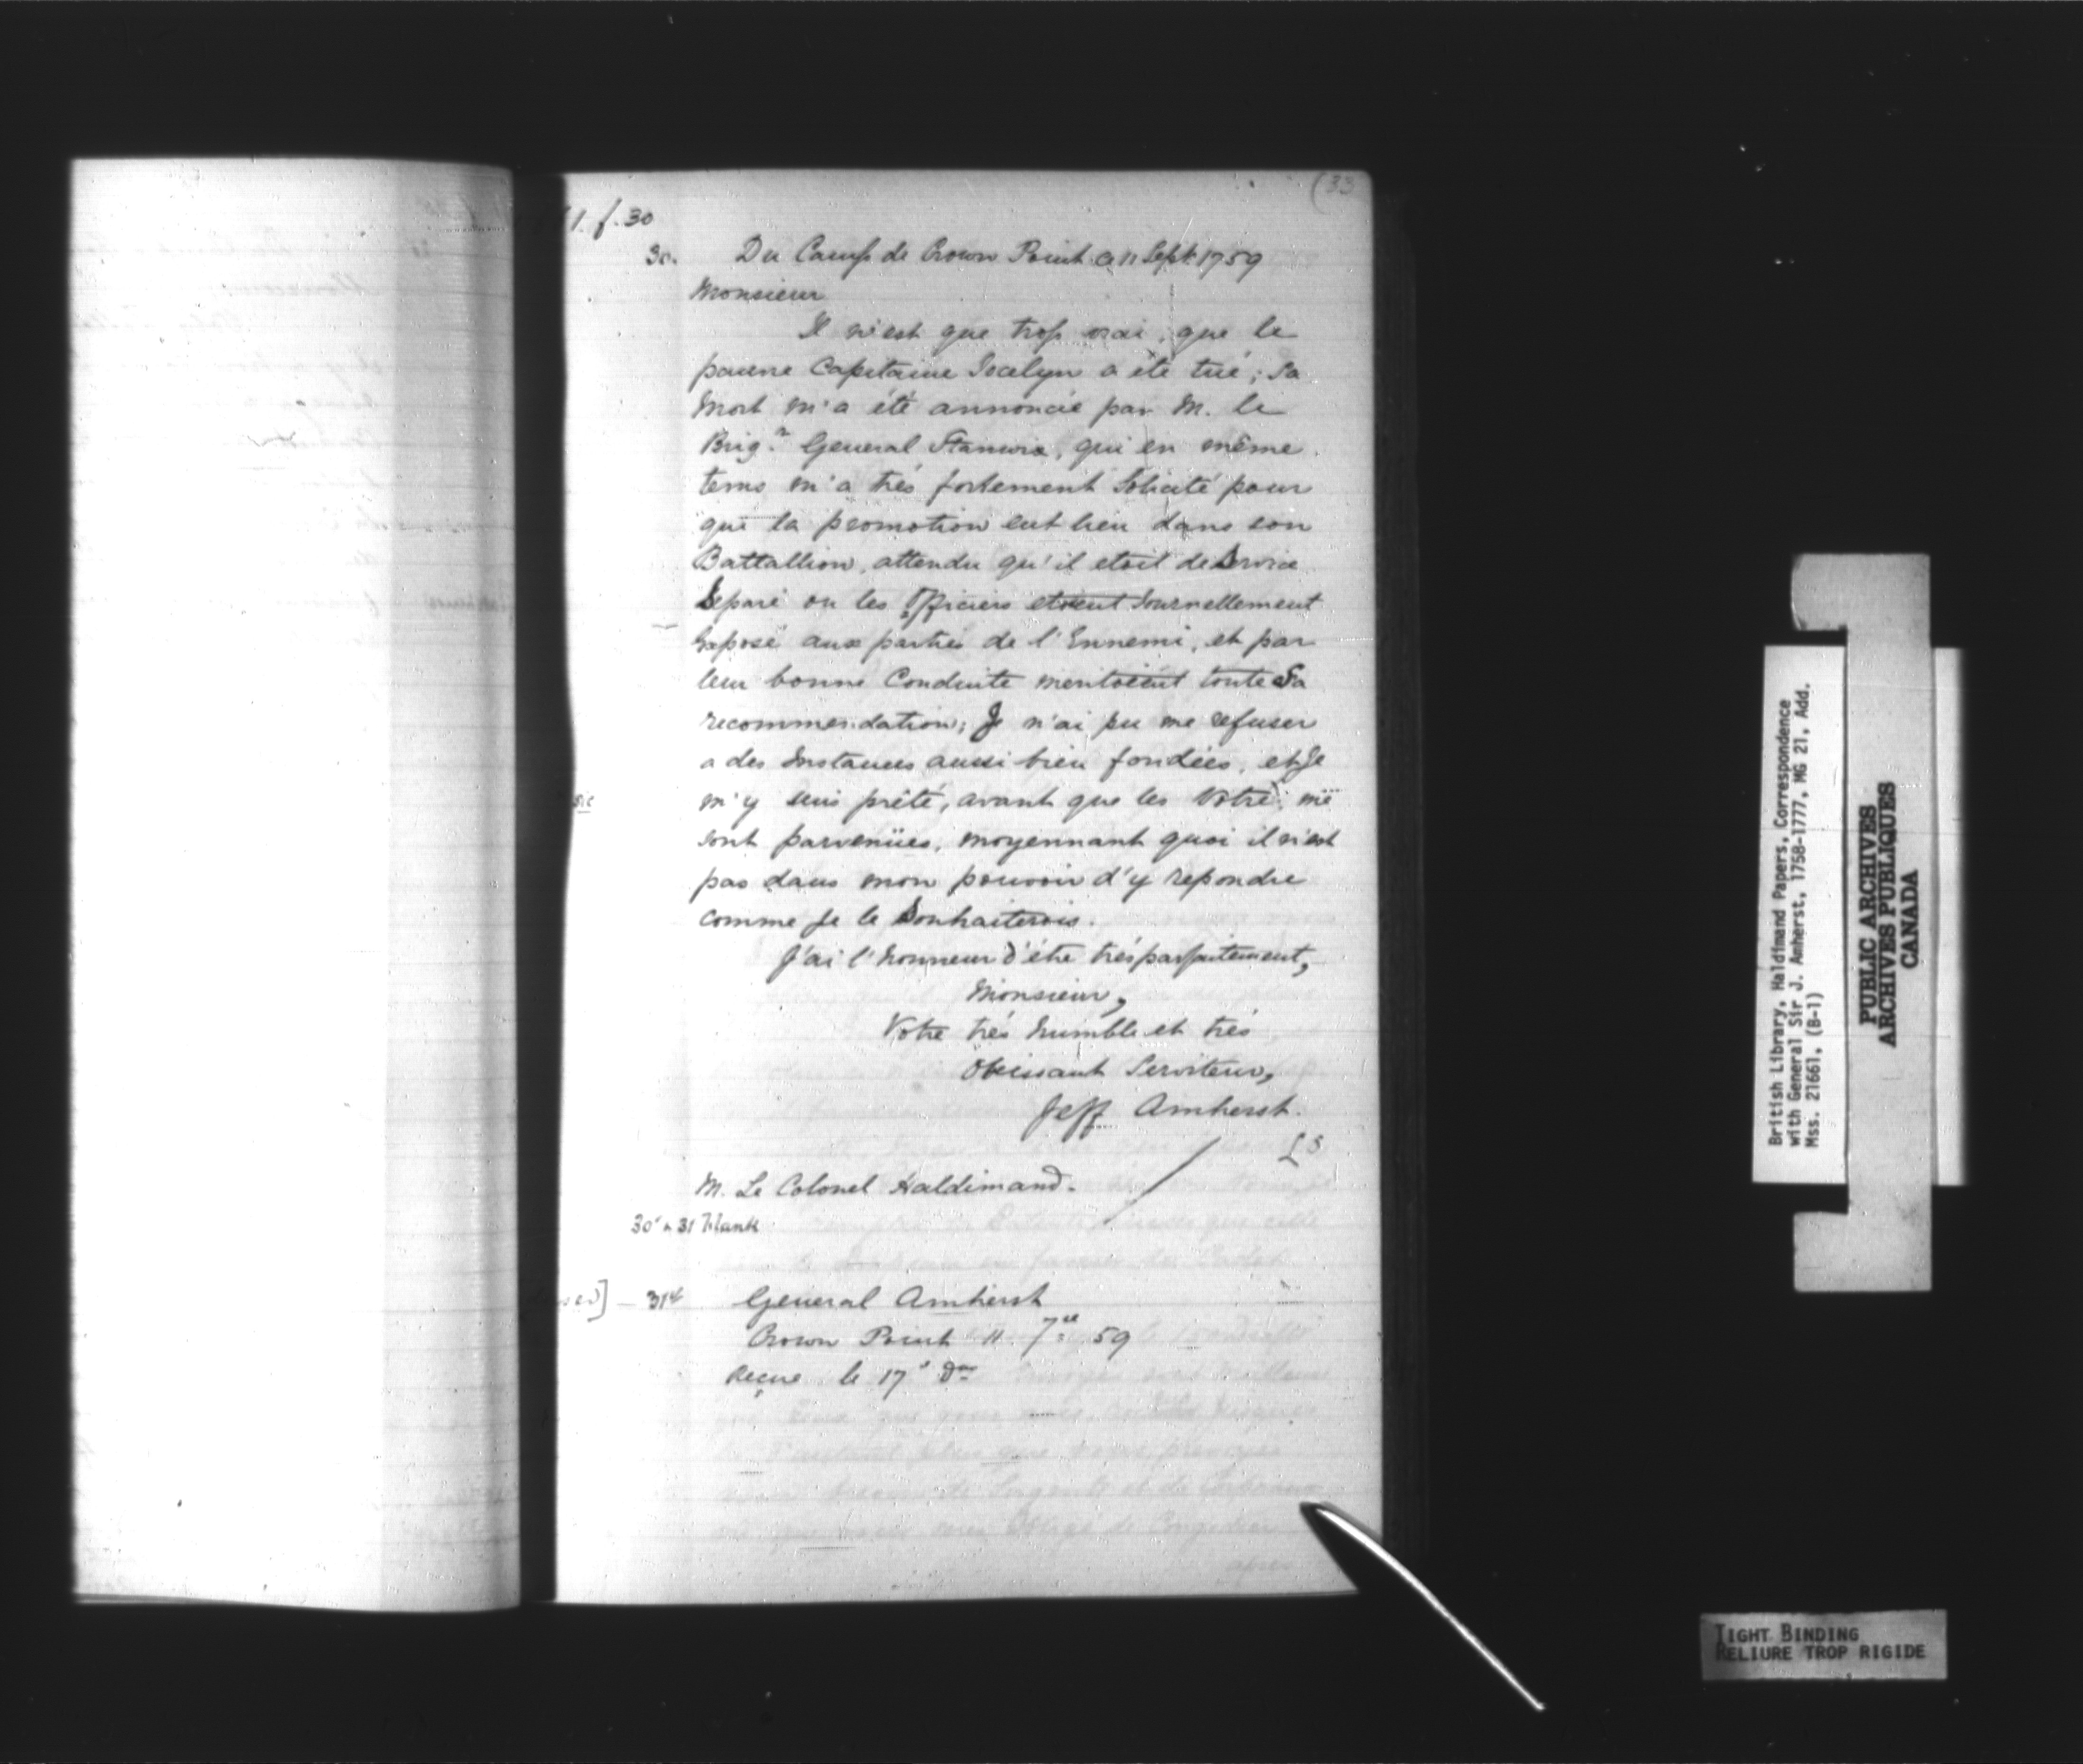 (33
1. f. 30
30. Du Camp de Crown Point a 11 Sept. 1759
Monsieur
Il n'est que trop vrai, que le
pauvre Capitaine Jocelyn a été tué; Sa
Mort m'a été annoncée par M. le
Brigr. General Stanwix, qui en même
tems m'a trés fortement Solicité pour
que la promotion eut lieu dans son
Battallion, attendu qu'il etoit de Service
Separé ou les Officiers etoient Journellement
Exposé aux parties de l'Ennemi, et par
leur bonne Conduite meritoient toute Sa
recommendation; Je n'ai pu me refuser
a des Instances aussi bien fondées, et Je
sic m'y suis prêté, avant que les Votre me
sont parvenües, moyennant quoi il n'est
pas dans mon pouvoir d'y repondre
comme Je le Souhaiterois.
J'ai l'honneur d'étre trés parfaitement,
Monsieur,
Votre trés humble et trés
Obeissant Serviteur,
Jeff Amherst.
LS
M. Le Colonel Haldimand.
30b & 31 blank
31b General Amherst
Crown Point 11 7re 59
Reçue le 17e Do
British Library, Haldimand Papers, Correspondence
with General Sir J. Amherst, 1758-1777, MG 21, Add.
Mss. 21661, (B-1)
PUBLIC ARCHIVES
ARCHIVES PUBLIQUES
CANADA
TIGHT BINDING
RELIURE TROP RIGIDE